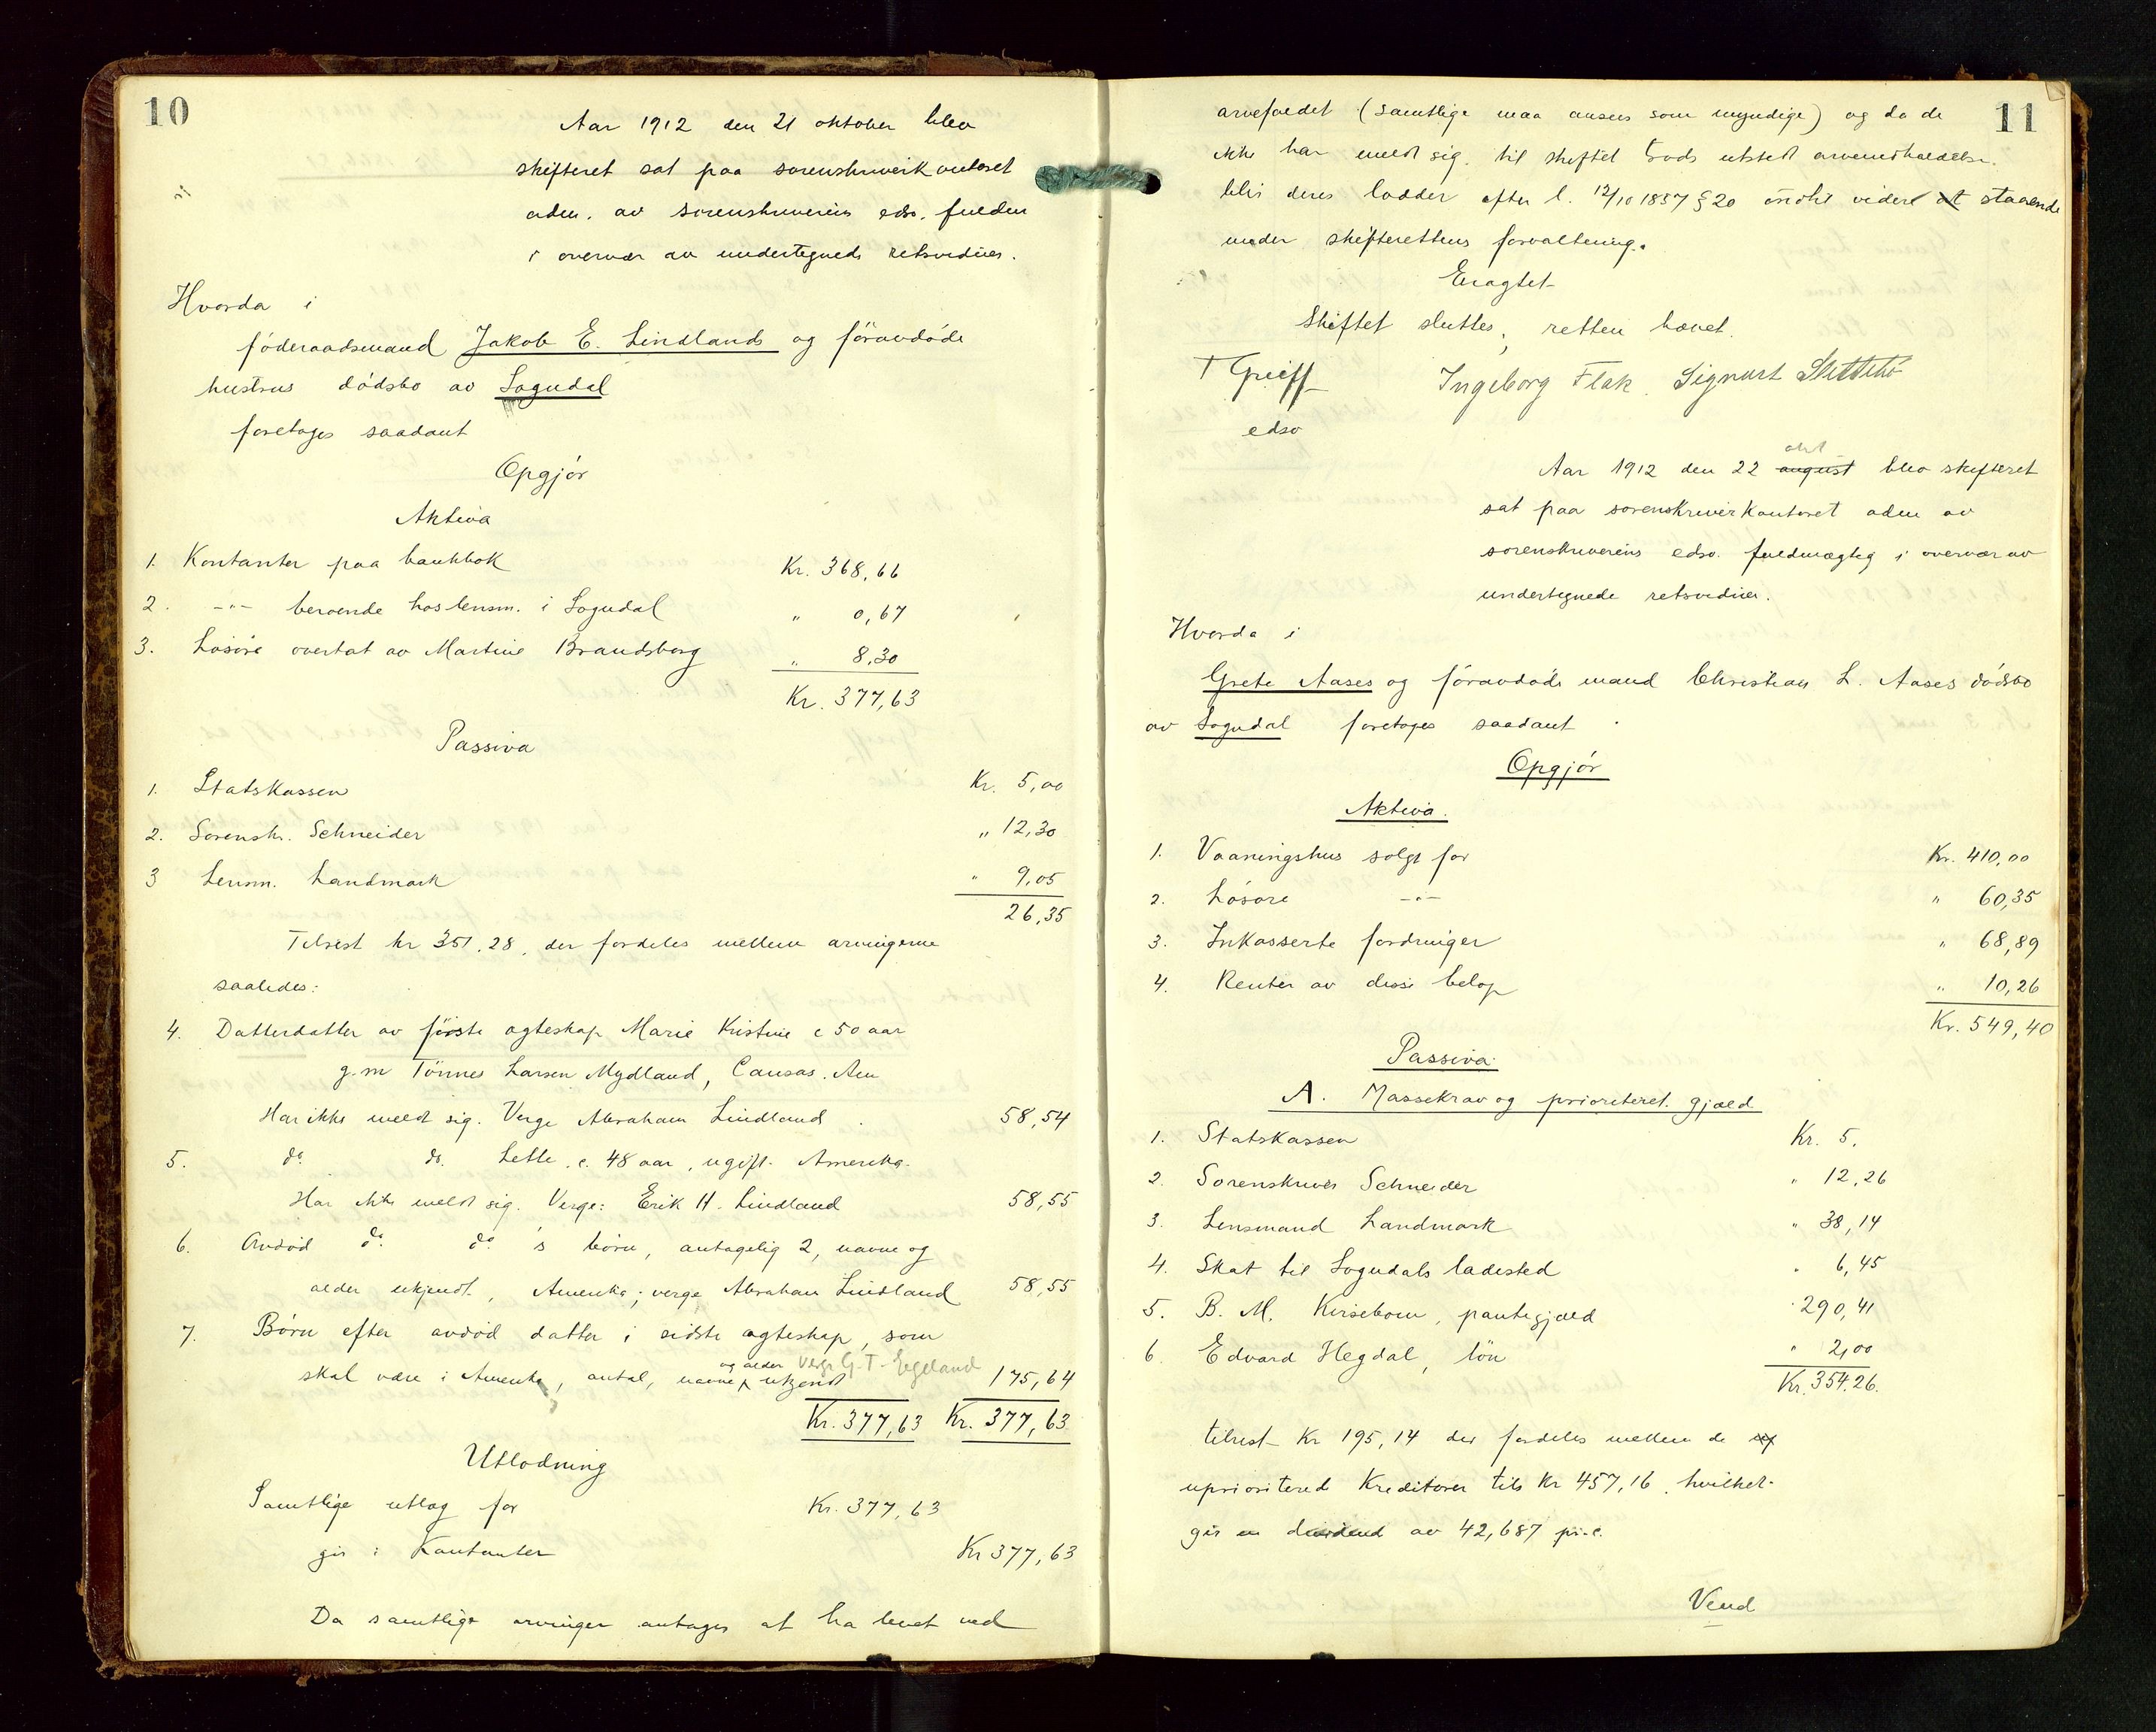 10
Aar 1912 den 21 oktober blev
skifteret sat paa sorenskriverkontoret
adm. av sorenskriverens edsv. fuldm
i overvær av undertegnede retsvidner.
Hvorda i
föderaadsmand Jakob E. Lindlands og föravdöde
hustrus dödsbo av Sogndal
foretages saadant
Opgjör
Aktiva
1. Kontanter paa bankbok Kr. 368,66
2. -"- beroende hos lensm. i Sogndal " 0,67
3. Lösöre overtat av Martine Brandsberg " 8,30
Kr. 377,63
Passiva
1. Statskassen Kr. 5,00
2. Sorenskr. Schneider " 12,30
3 Lensm. Landmark " 9,05
26,35
Tilrest kr 351.28, der fordeles mellem arvingerne
saaledes:
4. Datterdatter av förste egteskap Marie Kristine c 50 aar
g.m Tönnes Larsen Mydland, Cansas. Am
Har ikke meldt sig. Verge Abraham Lindland 58,54
5. do. do. Lette, c. 48 aar, ugift. Amerika.
Har ikke meldt sig. Verge: Erik H. Lindland 58,55
6. Avdöd do. do. s börn, antagelig 2, navne og
alder ukjendt, Amerika; verge Abraham Lindland 58,55
7. Börn efter avdöd datter i sidste egteskap, som
og alder Verge G. T. Eegeland
skal være i Amerika, antal, navne ukjendt 175,64
Kr. 377,63 Kr. 377,63
Utlodning
Samtlige utlæg for Kr. 377,63
gis i Kontanter Kr 377,63
Da samtlige arvinger antages at ha levet ved
11
arvefaldet (samtlige maa ansees som myndige) og da de
ikke har meldt sig til skiftet trods utsted arveindkaldelse.
blir deres lodder efter l. 12/10 1857 § 20 indtil videre at staaende
under skifterettens forvaltning.
Eragtet
Skiftet sluttes, retten hævet.
T Greiff Ingeborg Flak. Sigmart
edsv
okt
Aar 1912 den 22 august blev skifteret
sat paa sorenskriverkontoret adm av
sorenskriverens edsv. fuldmægtig i overvær av
undertegnede retsvidner.
Hvorda i
Grete Aases og föravdöde mand Christian L. Aases dödsbo
av Sogndal foretages saadant
Opgjör
Aktiva.
1. Vaaningshus solgt for Kr. 410,00
2. Lösöre -"- " 60,35
3. Inkasserte fordringer " 68,89
4. Renter av disse belöp " 10,26
Kr. 549,40
Passiva
A. Massekrav og prioriteret gjæld
1. Statskassen Kr. 5.
2. Sorenskriver Schneider " 12,26
3. Lensmand Landmark " 38,14
4. Skat til Sogndals ladested " 6,45
5. B. M. Kirsebom, pantegjæld " 290,41
6. Edvard Hegdal, lön " 2,00
Kr. 354.26.
tilrest Kr 195,14 der fordeles mellem de
uprioriterede Kreditorer tils Kr 457,16, hvilket
gir en dividend av 42,687 pr. c.
Vend